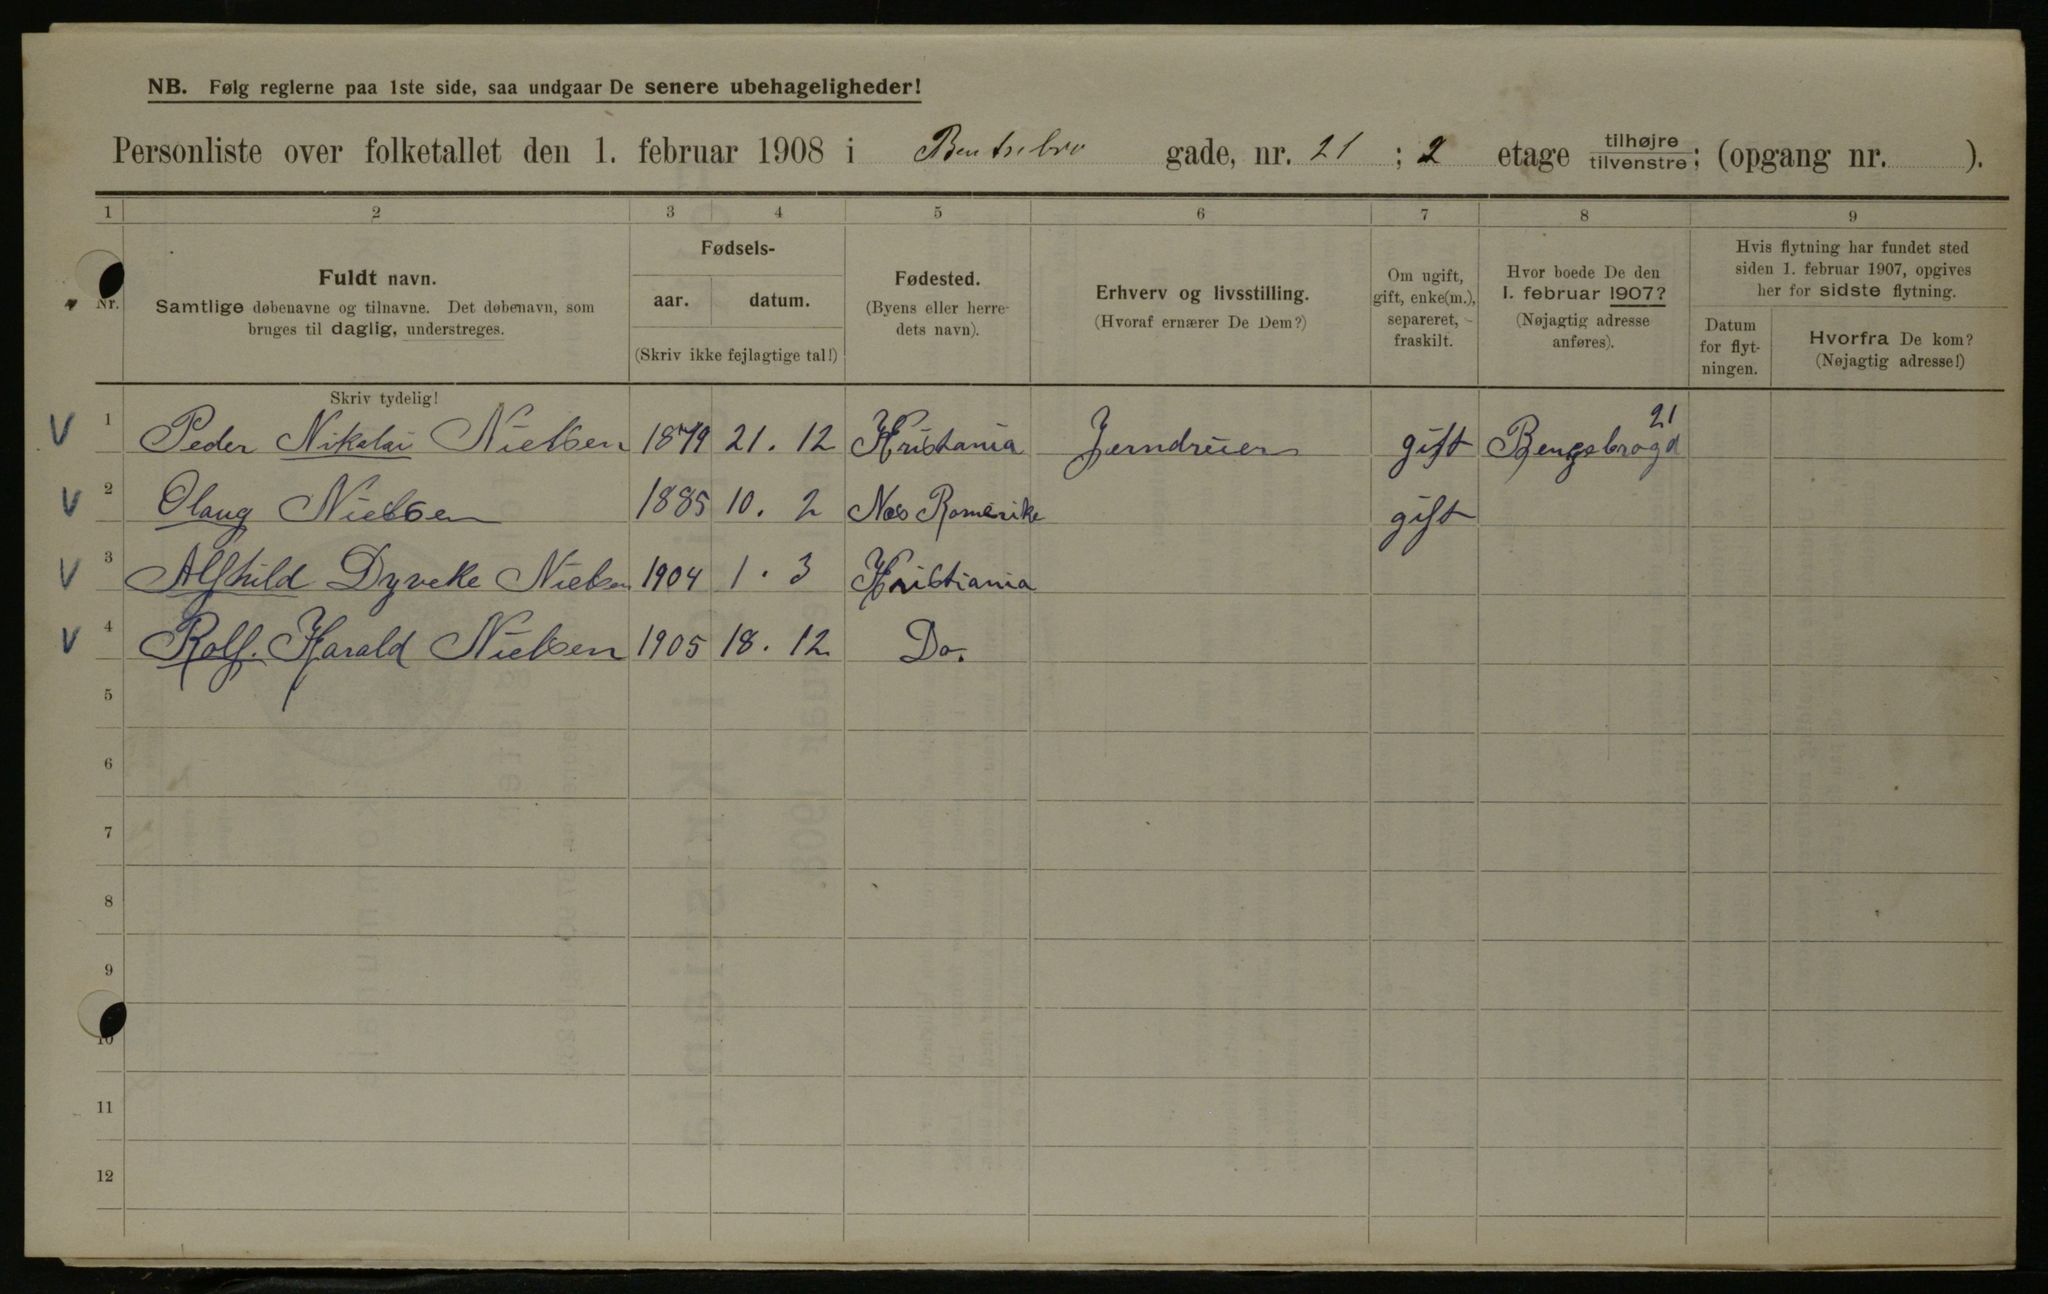 NB. Følg reglerne paa 1ste side, saa undgaar De senere ubehageligheder!
Personliste over folketallet den 1. februar 1908 i Bentsebro gade, nr. 21 ; 2 etage tilhøjre tilvenstre; (opgang nr. ).
1 2 3 4 5 6 7 8 9
Nr.
Fuldt navn.
Samtlige døbenavne og tilnavne. Det døbenavn, som
bruges til daglig, understreges.
Skriv tydelig!
Fødsels-
aar. datum.
(Skriv ikke fejlagtige tal!)
Fødested.
(Byens eller herre-
dets navn).
Erhverv og livsstilling.
(Hvoraf ernærer De Dem?)
Om ugift,
gift, enke(m.),
separeret,
fraskilt.
Hvor boede De den
1. februar 1907?
(Nøjagtig adresse
anføres).
Hvis flytning har fundet sted
siden 1. februar 1907, opgives
her for sidste flytning.
Datum
for flyt-
ningen.
Hvorfra De kom?
(Nøjagtig adresse!)
V 1 Peder Nikolai Nielsen 1879 21. 12 Kristania gift Bengsbrogd 21
V 2 Olaug Nielsen 1885 10. 2 Nes Romerike gift
V 3 Alfhild Dyveke Nielsen 1904 1. 3 Kristiania
V 4 Rolf. Harald Nielsen 1905 18. 12 Do.
5
6
7
8
9
10
11
12